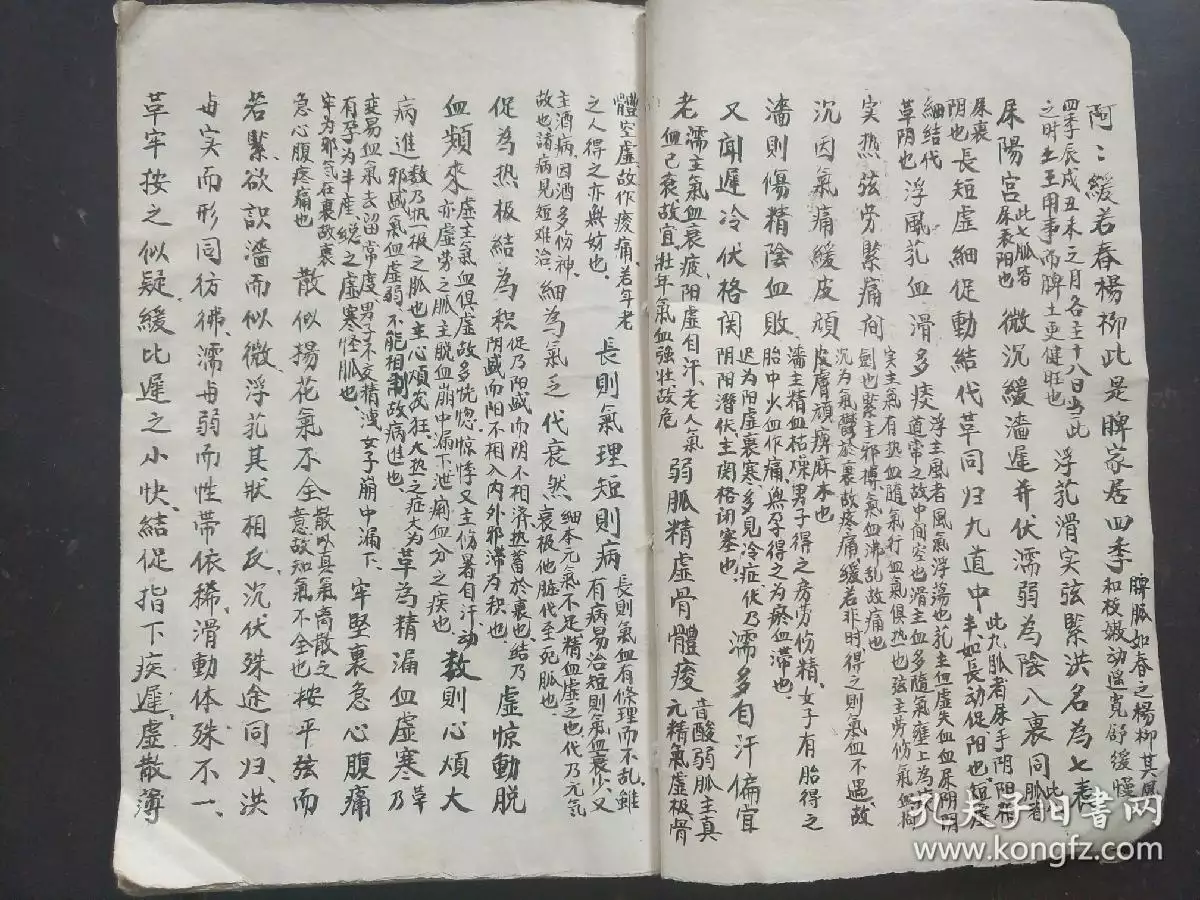 阿〻緩若春楊柳此是脾家居四季 脾脈如春之楊柳其風和枝嫩动
四季辰戌丑未之月各主十八日当此之时土王用事而脾土更健旺也
浮芤滑实弦緊洪名為七表
屎陽宫 此七脈皆屎表阳也 微沉緩濇遲并伏濡弱為陰八裏同 此八脈者
屎裏阴也 長短虚細促動結代革同归九道中 此九脈者屎手阴阳
細结代革阴也 浮風芤血滑多痰 浮主風者風氣浮蕩也芤主血虚失血血屎阴
实热弦劳緊痛间 实主氣有热血隨氣行血氣俱热也弦主劳伤氣血
劍也緊主邪搏氣血沸乱故痛也
沉因氣痛緩皮頑 沉为氣鬱於裏故疼痛緩若非时得之則氣血不遇故
皮膚頑痺麻木也
濇則傷精陰血敗 濇主精血枯燥男子得之房劳伤精女子有胎得之
胎中火血作痛無孕得之為瘀血滞也
又聞遲冷伏格関 迟为阳虚裏寒多見冷症伏乃阴阳潛伏主関格闭塞也
濡多自汗偏宜老 濡主氣血衰疲阳虚自汗老人氣血已衰故宜壯年氣血強壮故危
弱脈精虚骨體痠 昔酸弱脈主真元精氣虚极骨
體空虚故作痠痛若年老之人得之亦無妨也
長則氣理短則病 長則氣血有條理而不乱雖有病易治短則氣血衰少又
主酒病因酒多伤神故也诸病見短难治
細為氣乏代衰然 細本元氣不足精血虚乏也代乃元氣衰极他脏代至死脈也
促為热极結為积 促乃阳盛而阴不相济热蓄於裏也结乃阴盛而阳不相入内外邪滞为积也
虚惊動脱血頻來 虚主氣血俱虚故多恍惚惊悸又主伤暑自汗动亦虚劳之脈主脱血崩中漏下泄痢血分之疾也
数則心煩大病進 数乃帆一极之脈也主心煩发狂大热之症大为邪盛氣血虚弱不能相制故病進也
革為精漏血虚寒 革乃
变易血氣去留常度男子不交精洩女子崩中漏下
有孕为半産总之虚寒怪脈也
牢堅裏急心腹痛
牢为邪氣在裏故裏急心腹疼痛也
散似揚花氣不全 散以真氣离散之意故知氣不全也
按平弦而
若緊欲識濇而似微浮芤其狀相反沉伏殊途同归洪
与实而形同彷彿濡与弱而性带依稀滑動体殊不一
革牢按之似疑緩比遲之小快結促指下疾遲虚散薄
孔夫子旧書网
www.kongfz.com